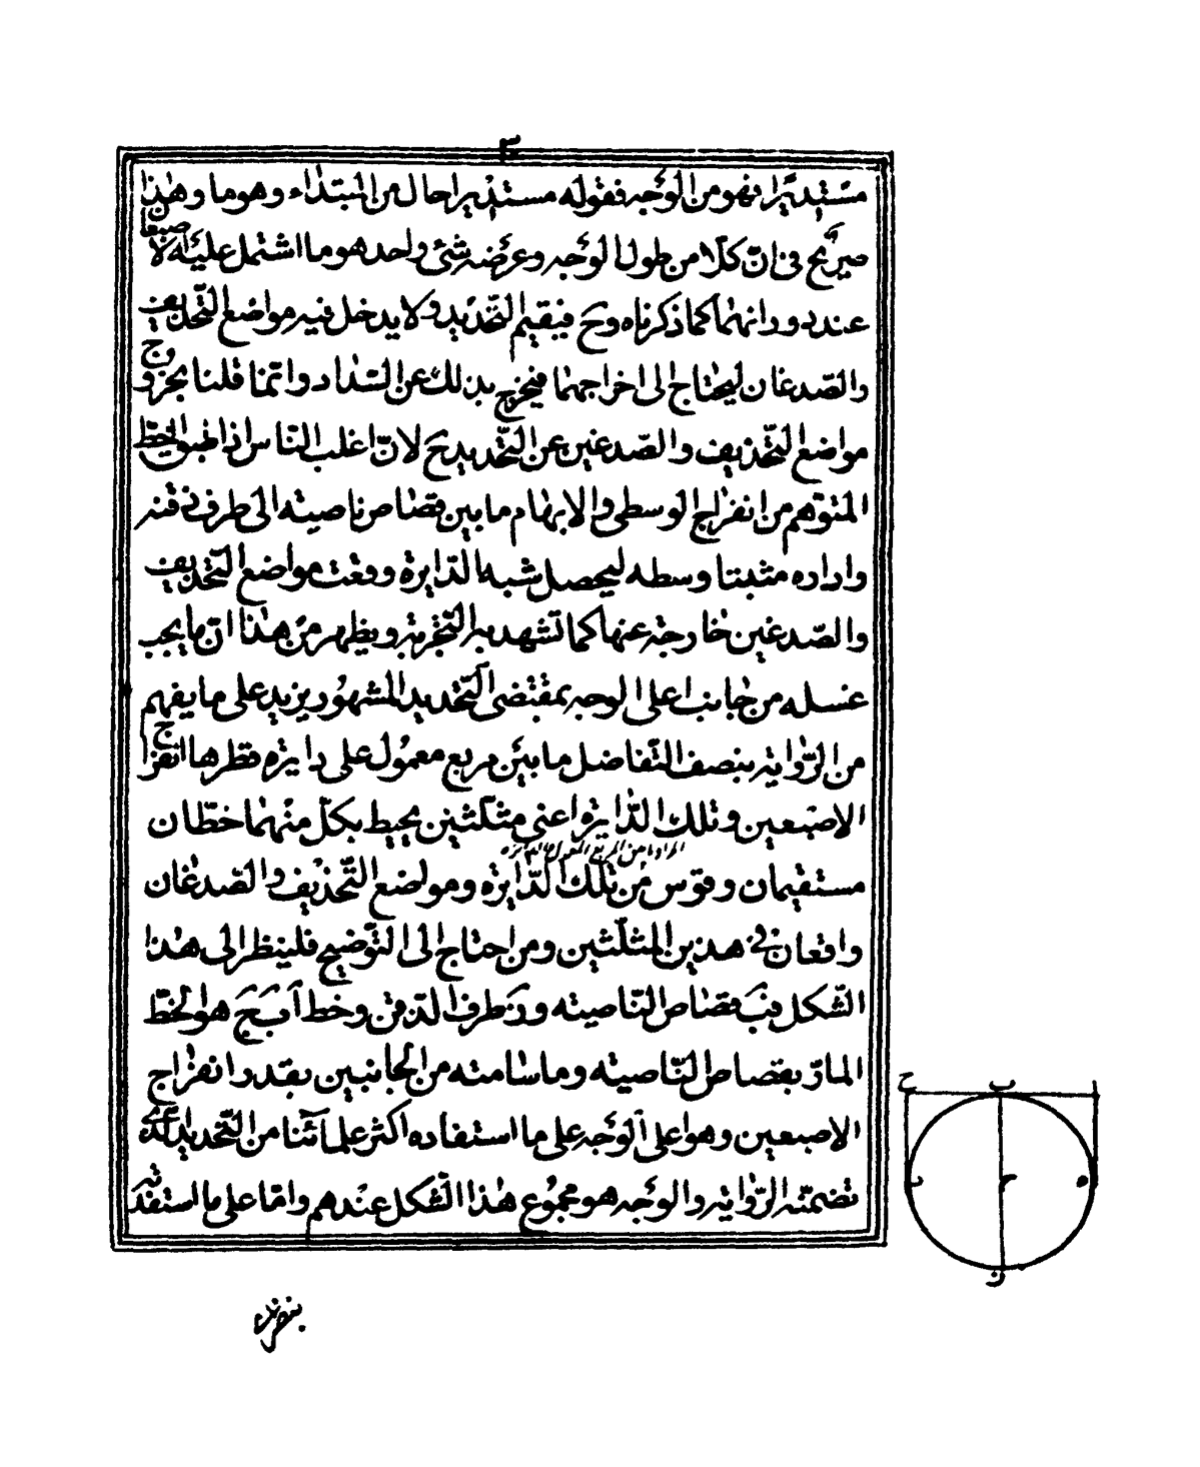 مستديرا فهو من الوجه فقوله مستديرا حال من المبتداء وهو ما وهذا
صريح في ان كلا من طول الوجه وعرضه شئ واحد هو ما اشتمل عليه الاصبعان
عند دورانهما كما ذكرناه وح فيقيم التحديد ولا يدخل فيه مواضع التحذيف
والصدغان ليحتاج الى اخراجهما فيخرج بذلك عن السداد وانما قلنا بخروج
مواضع التحذيف والصدغين عن التحديد ح لان اغلب الناس اذا طبق الخط
المتوهم من انفراج الوسطى والابهام ما بين قصاص ناصيته الى طرف ذقنه
واداره مثبتا وسطه ليحصل شبه الدايرة وقعت مواضع التحذيف
والصدغين خارجة عنها كما تشهد به التجربة ويظهر من هذا ان ما يجب
غسله من جانب اعلى الوجه بمقتضى التحديد المشهور يزيد على ما يفهم
من الرواية بنصف التفاضل ما بين مربع معمول على دايرة قطرها انفراج
الاصبعين وتلك الدايرة اعني مثلثين يحيط بكل منهما خطان
المراد من المربع المعمول على الدايرة
مستقيمان وقوس من تلك الدايرة ومواضع التحذيف والصدغان
واقعان في هذين المثلثين ومن احتاج الى التوضيح فلينظر الى هذا
الشكل فب قصاص الناصيته ود طرف الذقن وخط ا ب ج هو الخط
المار بقصاص الناصيته وما سامته من الجانبين بقدر انفراج
الاصبعين وهو اعلى الوجه على ما استفاده اكثر علمائنا من التحديد الذي
تضمنته الرواية والوجه هو مجموع هذا الشكل عندهم واما على ما استفدته
ح
ب
ا
ه
ن